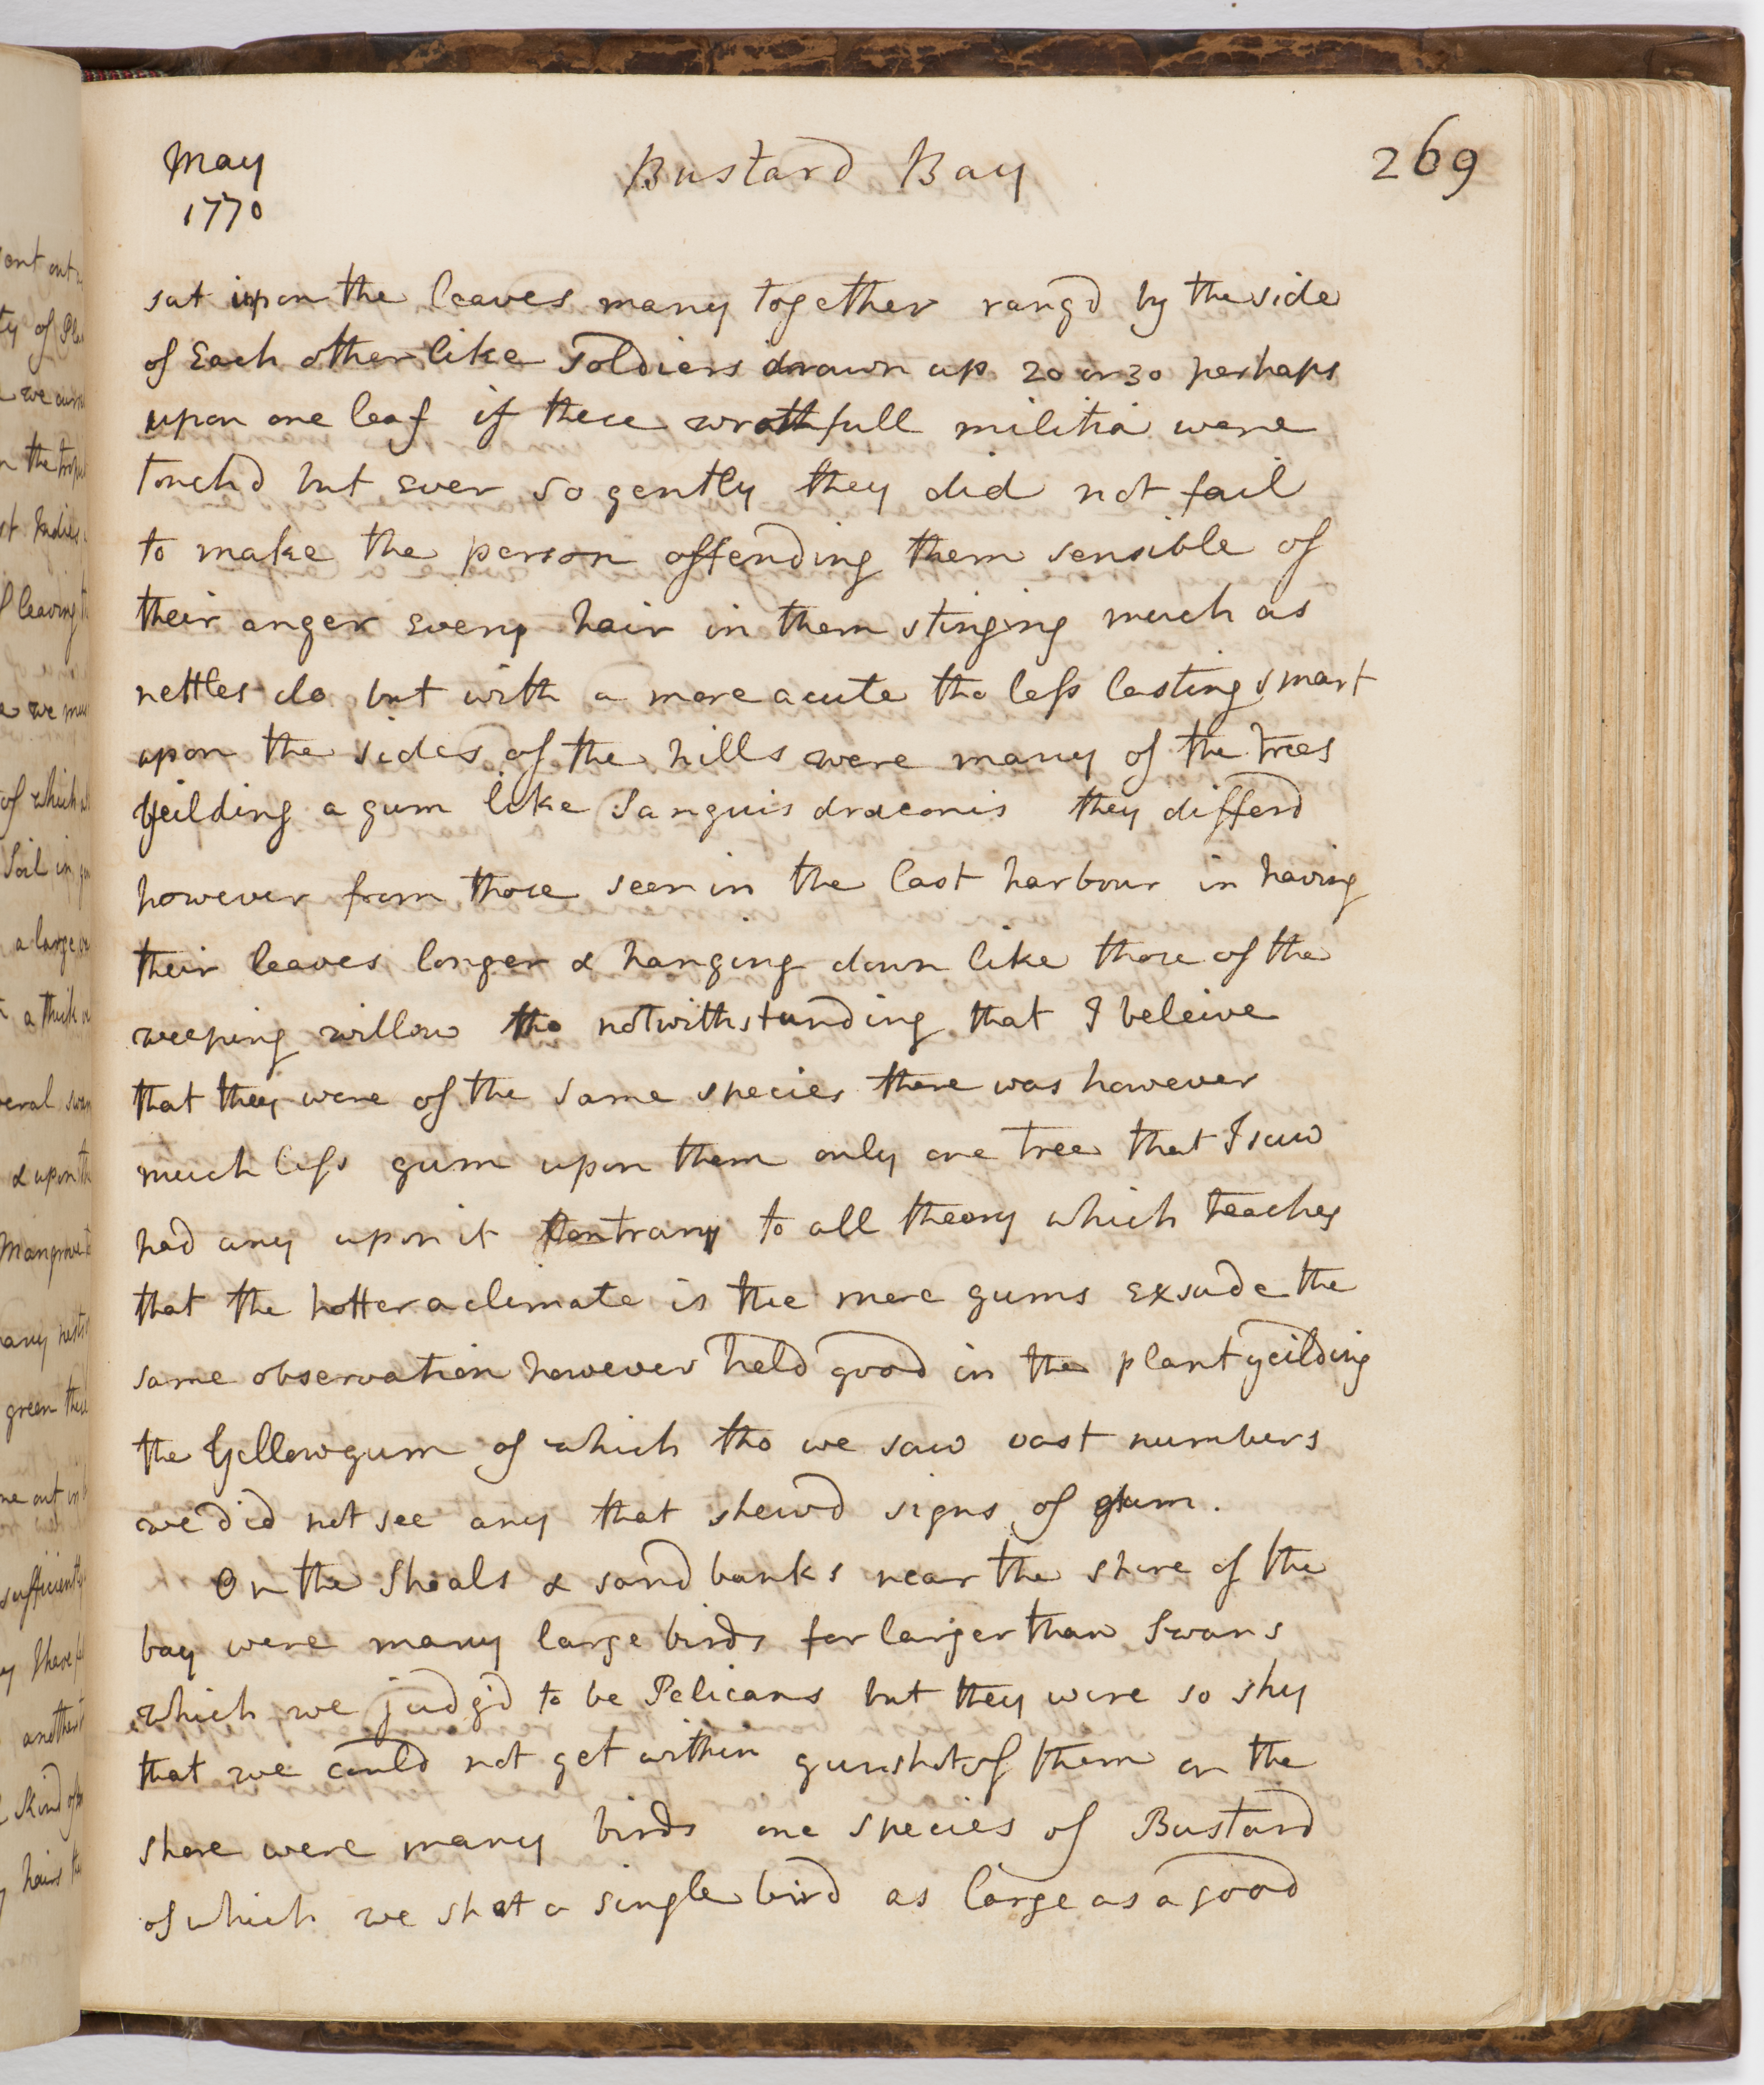 May
1770
Bustard Bay
269
sat upon the leaves many together rang'd by the side
of Each other like soldiers drawn up 20 or 30 perhaps
upon one leaf if these wrathfull militia were
touch'd but ever so gently they did not fail
to make the person offending them sensible of
their anger every hair in them stinging much as
nettles do but with a more acute tho less lasting smart
upon the sides of the hills were many of the trees
yeilding a gum like Sanguis draconis they differd
however from those seen in the last harbour in having
their leaves longer & hanging down like those of the
weeping willow tho notwithstanding that I beleive
that they were of the same species there was however
much less gum upon them only one tree that I saw
had any upon it Contrary to all theory which teaches
that the hotter a climate is the more gums exsude the
same observation however held good in the plant yeilding
the Yellow gum of which tho we saw vast numbers
we did not see any that shewd signs of gum.
On the Shoals & sand banks near the shore of the
bay were many large birds far larger than swans
which we judg'd to be Pelicans but they were so shy
that we could not get within gunshot of them on the
shore were many birds one species of Bustard
of which we shot a single bird as large as a good